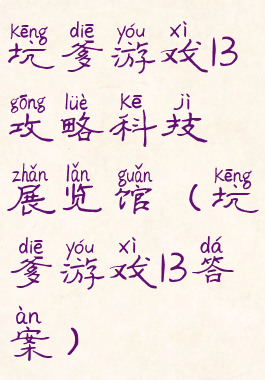 kēng diē yóu xì
坑爹游戏13
gōng lüè kē jì
攻略科技
zhǎn lǎn guǎn kēng
展览馆（坑
diē yóu xì dá
爹游戏13答
àn
案）